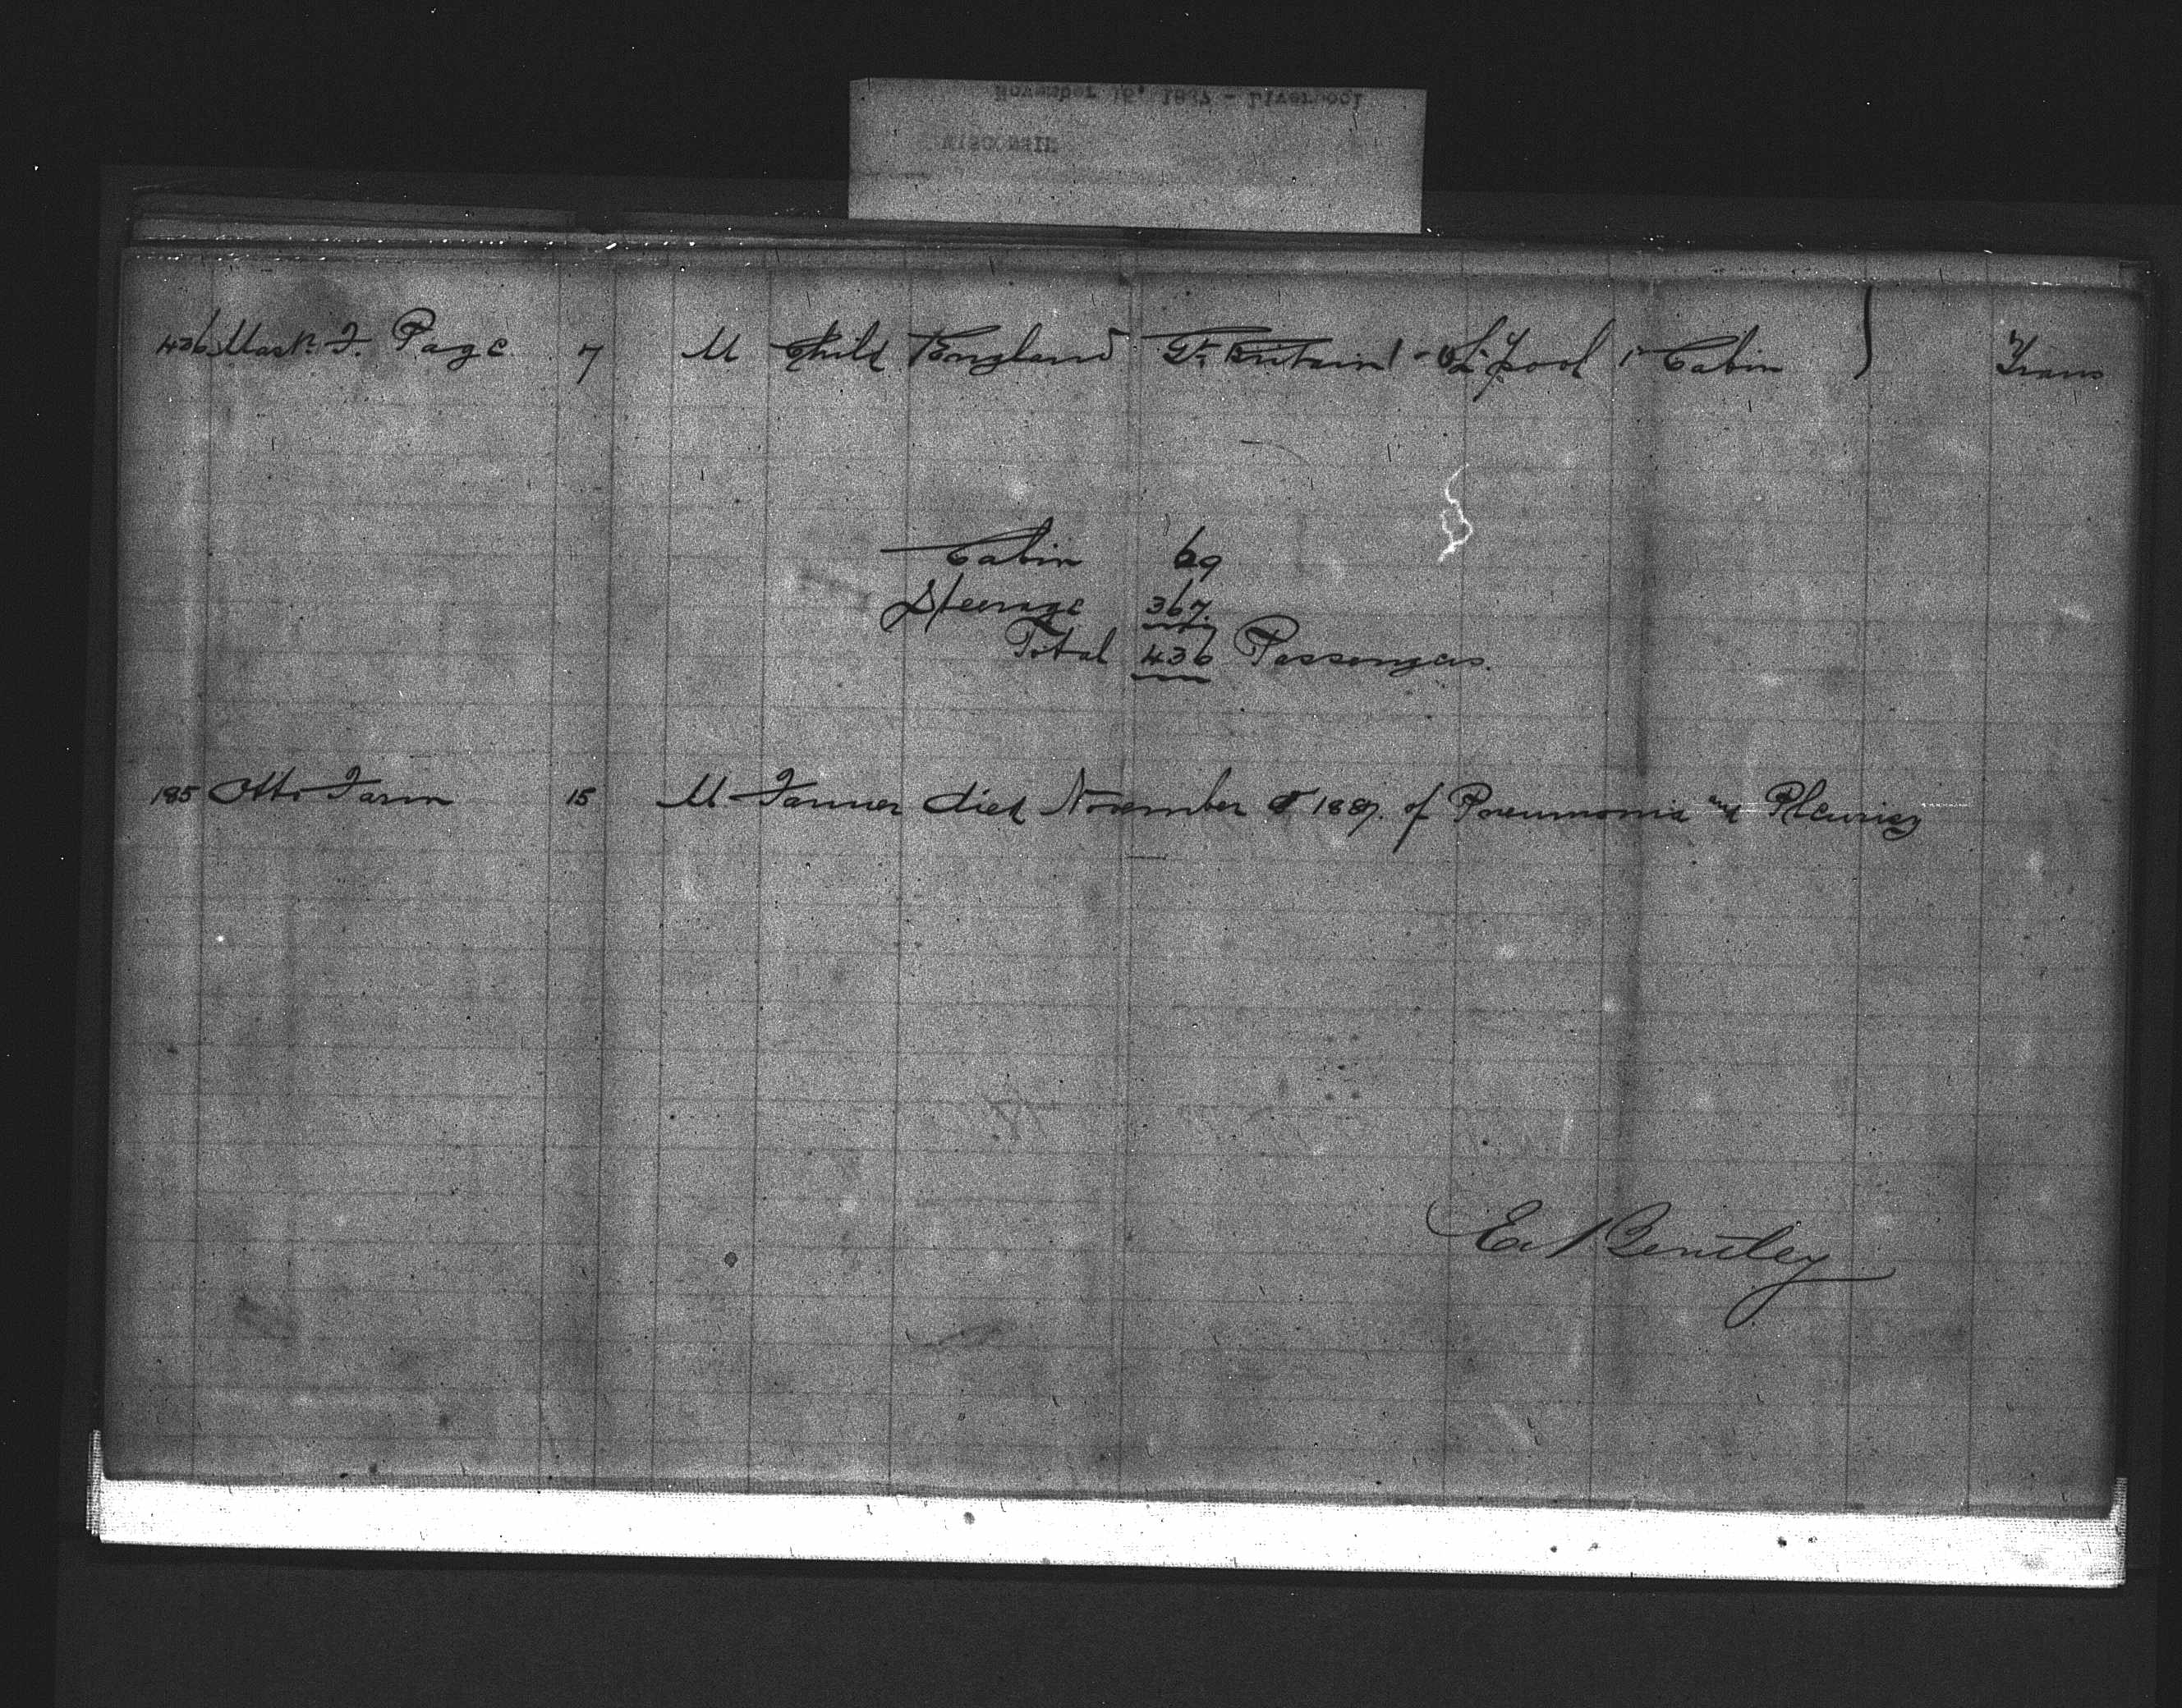 November 16, 1887 - Liverpool
WISCONSIN
436 Mastr. F. Page 7 M Child England Gt. Britain L'pool 1 Cabin Trans
Cabin 69
Steerage 367
Total 436 Passengers.
185 Otto Farm 15 M Farmer died November 1887. of Pneumonia and Pleurisy
E. Bentley